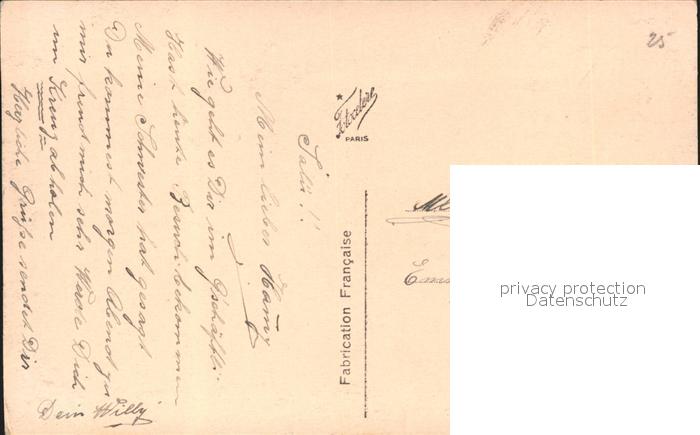 Salü!!
Mein lieber Hanny
Wie geht es Dir im Gschäftli
Hast heute Besuch bekommen
Meine Schwester hat gesagt
Du kommest morgen Abend zu
mir freud mich sehr Werde Dich
um Kreuz abholen
Herzliche Grüße sendet Dir
Dein Willy
PARIS
Fabrication Française
25
privacy protection
Datenschutz